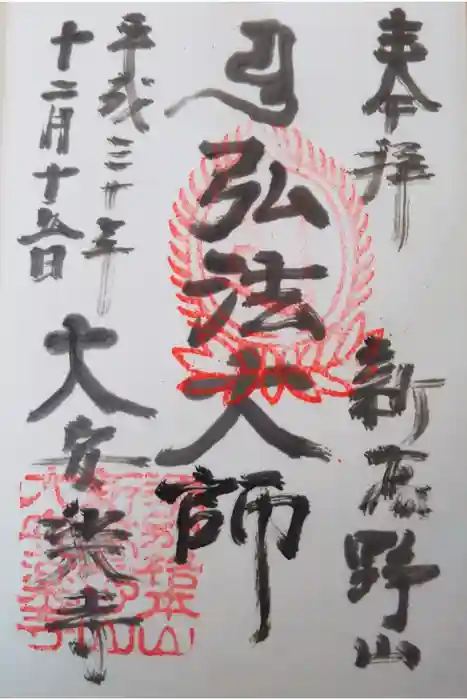 奉拝
新高野山
弘法大師
平成三十年
十二月十五日
大安楽寺